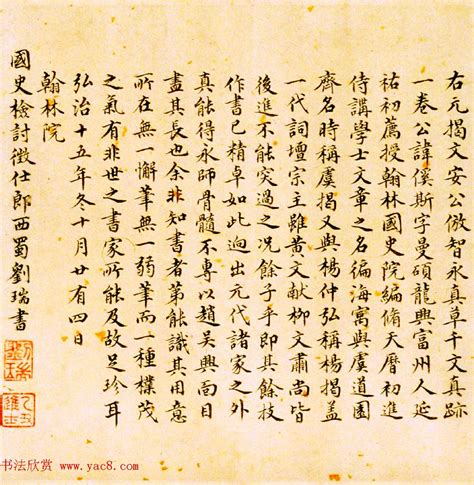 右元揭文安公倣智永真草千文真跡
一卷公諱傒斯字曼碩龍興富州人延
祐初薦授翰林國史院編脩天曆初進
侍講學士文章之名徧海寓與虞道園
齊名時稱虞揭又與楊仲弘稱楊揭蓋
一代詞壇宗主雖黃文献柳文肅尚皆
後進不能突過之况餘子乎即其餘技
作書已精卓如此逈出元代諸家之外
真能得永師骨髓不專以趙吳興面目
盡其長也余非知書者第能識其用意
所在無一懈筆無一弱筆而一種樸茂
之氣有非世之書家所能及故足珍耳
弘治十五年冬十月廿有四日
翰林院
國史檢討徵仕郎西蜀劉瑞書
书法欣赏 www.yac8.com